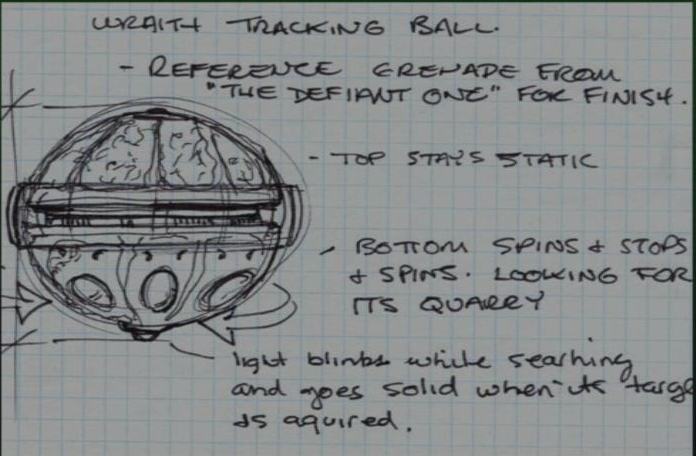 WRAITH TRACKING BALL.
- REFERENCE GRENADE FROM
"THE DEFIANT ONE" FOR FINISH.
- TOP STAYS STATIC
- BOTTOM SPINS & STOPS
& SPINS. LOOKING FOR
ITS QUARRY
light blinks while searhing
and goes solid when its targe
is aquired.